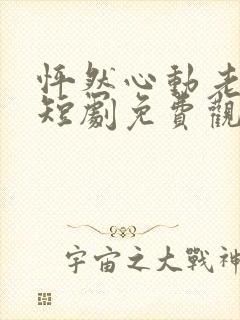 怦然心動老
短劇免費觀
宇宙之大戰神